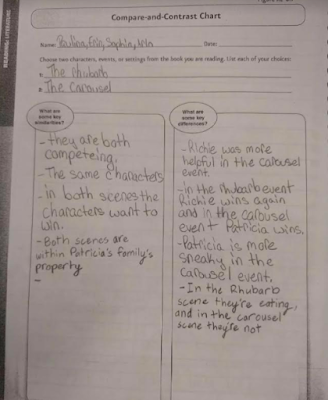 READING: LITERATURE
Compare-and-Contrast Chart
Name: Paulina, Eric, Sophia,
Date:
Choose two characters, events, or settings from the book you are reading. Use each of your choices
1: The Rhubarb
2: The Carousel
What are
some key
similarities?
- they are both
competeing.
- The same characters
- in both scenes the
characters want to
win.
- Both scenes are
within Patricia's family's
property
-
What are
some key
differences?
- Richie was more
helpful in the carousel
event.
- in the rhubarb event
Richie wins again
and in the carousel
event Patricia wins.
- Patricia is more
sneaky in the
carousel event.
- In the Rhubarb
scene they're eating,
and in the carousel
scene they're not